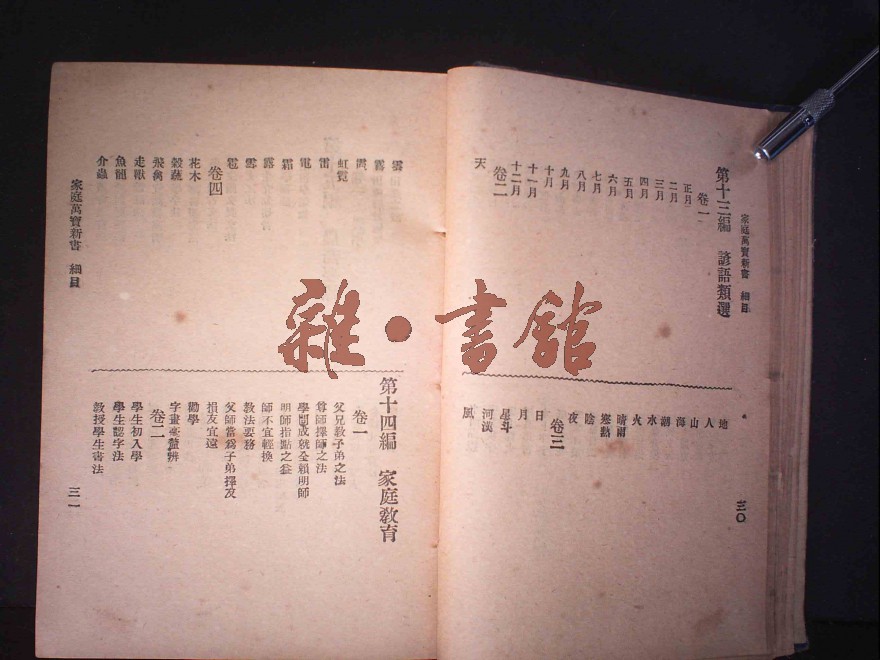 家庭萬寶新書 細目
第十三編 諺語類選
卷一
正月
二月
三月
四月
五月
六月
七月
八月
九月
十月
十一月
十二月
卷二
天
地
人
山
海
潮
水
火
晴雨
寒熱
陰
夜
卷三
日
月
星斗
河漢
風
三〇
雲
霧
霞
虹霓
雷
電
霜
露
雪
雹
卷四
花木
穀蔬
飛禽
走獸
魚龍
介蟲
第十四編 家庭教育
卷一
父兄教子弟之法
尊師擇師之法
學問成就全賴明師
明師指點之益
師不宜輕換
教法要務
父師當為子弟擇友
損友宜遠
勸學
字畫毫釐辨
卷二
學生初入學
學生認字法
教授學生書法
家庭萬寶新書 細目
三一
雜•書館